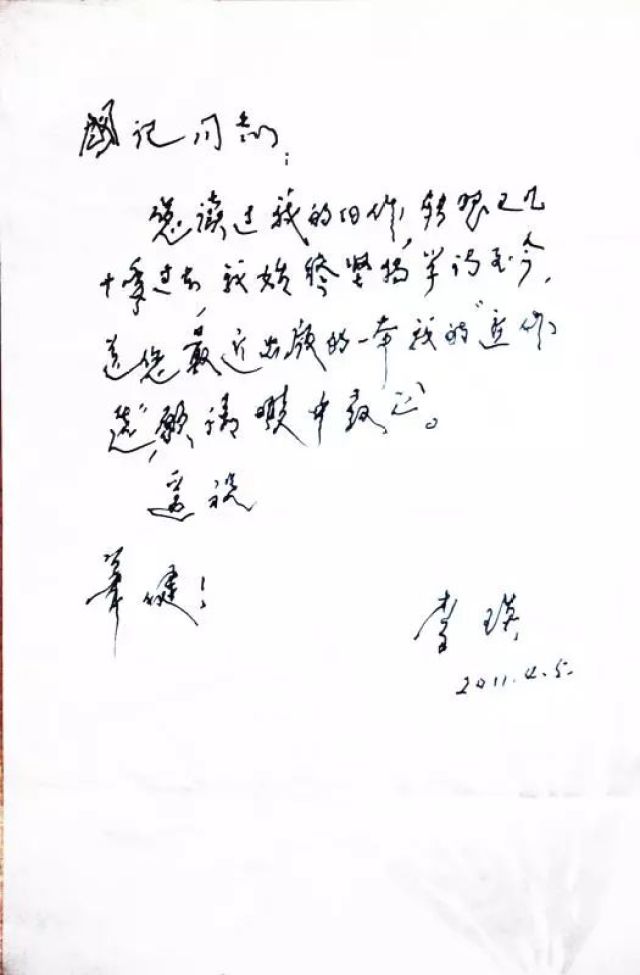 國记同志:
您读过我的旧作,转眼已几
十年过去,我始终坚持学诗至今,
送您最近出版的一本我的“近作
选”,愿请暇中教正。
遥祝
笔健!
李瑛
2011.4.5.